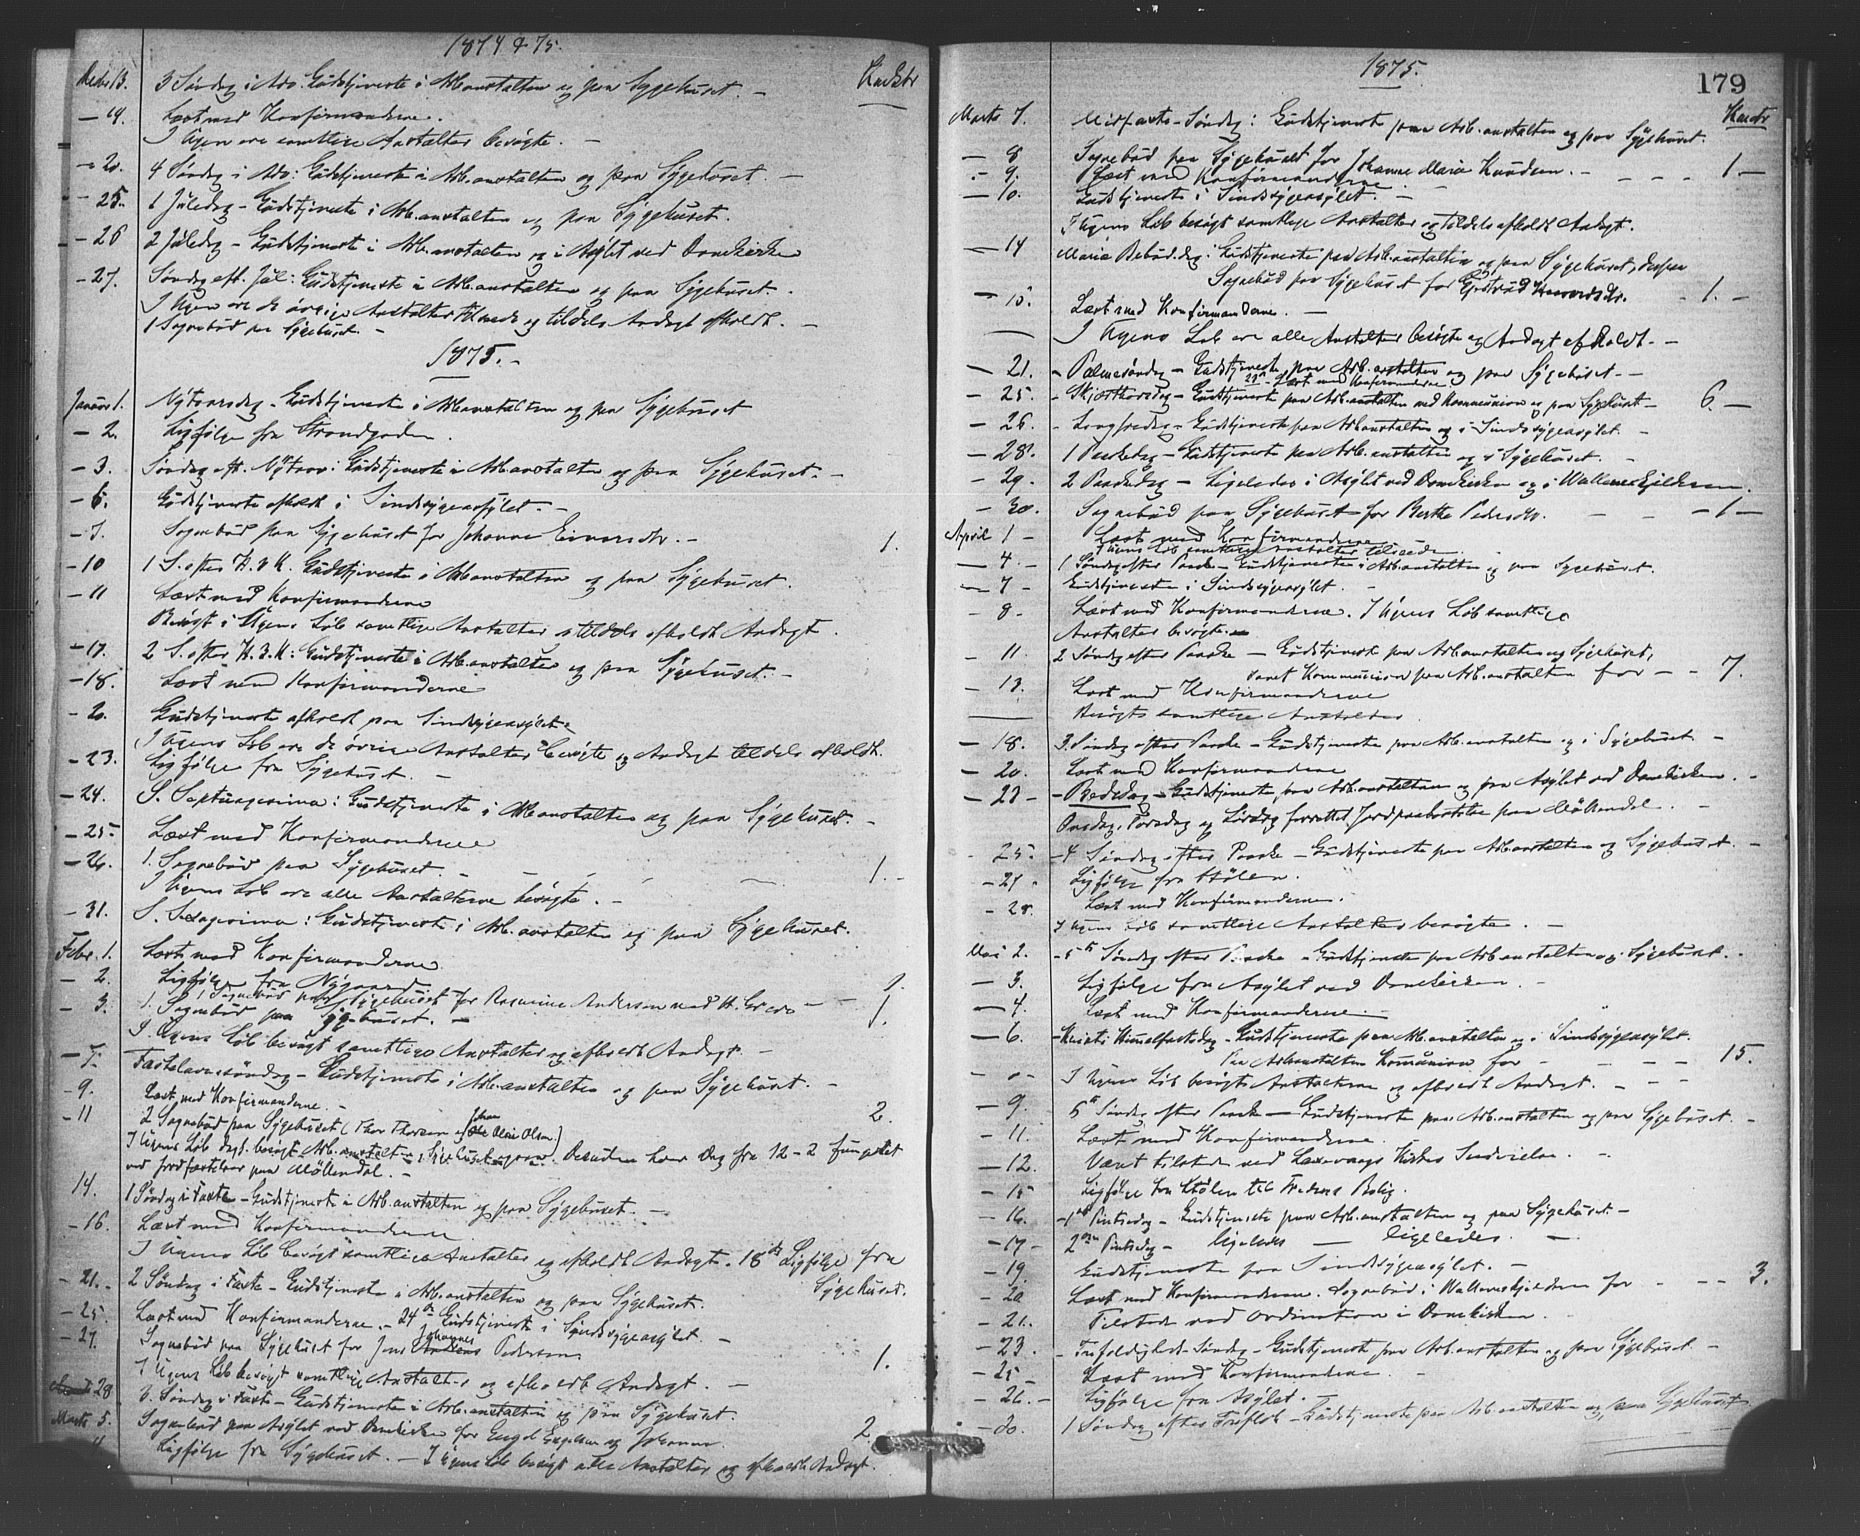 1874 & 75.
Decbr 13. 3 Søndag i Adv. Gudstjeneste i Arb.anstalten og paa Sygehuset. —
— 14. Læst med Konfirmanderne.
I Ugen ere samtlige Anstalter besøgte. —
— 20. 4 Søndag i Adv: Gudstjeneste i Arb.anstalten og paa Sygehuset. —
— 25. 1 Juledag — Gudstjeneste i Arb.anstalten og paa Sygehuset.
— 26 2 Juledag — Gudstjeneste i Arb.anstalten og i Asylet ved Domkirken
— 27. Søndag eft. Jul: Gudstjeneste i Arb.anstalten og paa Sygehuset.
I Ugen ere de øvrige Anstalter tilseede og tildels Andagt afholdt. —
1 Sognebud paa Sygehuset —
1875. —
Januar 1. Nytaarsdag — Gudstjeneste i Arb.anstalten og paa Sygehuset
— 2. Ligfølge fra Strandgaden.
— 3. Søndag eft. Nytaar: Gudstjeneste i Arb.anstalten og paa Sygehuset. —
— 6. Gudstjeneste afholdt i Sindsygeasylet. —
— 7. Sognebud paa Sygehuset for Johanne Einersdtr. — 1.
— 10 1 S. efter H. 3 K. Gudstjeneste i Arb.anstalten og paa Sygehuset.
— 11 Læst med Konfirmanderne
Besøgt i Ugens Løb samtlige Anstalter og tildels afholdt Andagt.
— 17. 2 S. efter H. 3 K: Gudstjeneste i Arb.anstalten og paa Sygehuset. —
— 18. Læst med Konfirmanderne
— 20. Gudstjeneste afholdt paa Sindsygeasylet.
I Ugens Løb ere de øvrige Anstalter besøgte og Andagt tildels afholdt.
— 23. Ligfølge fra Sygehuset. —
— 24. S. Septuagesima: Gudstjeneste i Arb.anstalten og paa Sygehuset. —
— 25. Læst med Konfirmanderne
— 26. 1. Sognebud paa Sygehuset. — 1. —
I Ugens Løb ere alle Anstalterne besøgte. —
— 31. S. Sexagesima: Gudstjeneste i Arb.anstalten og paa Sygehuset.
Febr. 1. Læst med Konfirmanderne
— 2. Ligfølge fra Nygaard
1 Sognebud paa Sygehuset for Rasmine Andersen — 1.
— 3. 1. Sognebud paa Sygehuset. — 1.
I Ugens Løb besøgt samtlige Anstalter og afholdt Andagt —
— 7. Fastelavnssøndag — Gudstjeneste i Arb.anstalten og paa Sygehuset. —
— 9. Læst med Konfirmanderne. —
— 11 2 Sognebud paa Sygehuset (Thor Thorsen og Johan Olai Olsen) 2.
I Ugens Løb dagl. besøgt Arb.anstalten, Sygehuset. Desuden hver Dag fra 12–2 fungeret
ved Jordfæstelser paa Møllendal. —
14. 1 Søndag i Faste — Gudstjeneste i Arb.anstalten og paa Sygehuset. —
— 16. Læst med Konfirmanderne
I Ugens Løb besøgt samtlige Anstalter og afholdt Andagt. 18de Ligfølge fra Sygehuset.
— 21. — 2 Søndag i Faste — Gudstjeneste i Arb.anstalten og paa Sygehuset.
— 25. Læst med Konfirmanderne. — 24de Gudstjeneste i Sindssygeasylet. —
— 27. Sognebud paa Sygehuset for Jens Johannes Pedersen 1.
I Ugens Løb besøgt samtlige Anstalter og afholdt Andagt. —
28 3. Søndag i Faste — Gudstjeneste i Arb.anstalten og paa Sygehuset.
Marts 5. Sognebud paa Asylet ved Domkirken for Engel Engelsen og Johanne 2.
Ligfølge fra Sygehuset. — I Ugens Løb besøgt alle Anstalter og afholdt Andagt.
1875.
179
Marts 7. Midfaste-Søndag: Gudstjeneste paa Arb.anstalten og paa Sygehuset.
— 8 Sognebud paa Sygehuset for Johanne Marie Knudsen. — 1. —
— 9. Læst med Konfirmanderne
— 10. Gudstjeneste i Sindssygeasylet. —
I Ugens Løb besøgt samtlige Anstalter og tildels afholdt Andagt.
— 14 Mariæ Bebud.dag: Gudstjeneste paa Arb.anstalten og paa Sygehuset,
Sognebud paa Sygehuset for Gjertrud — 1. —
— 15 Læst med Konfirmanderne. —
I Ugens Løb ere alle Anstalter besøgte og Andagt afholdt. —
— 21. — Palmesøndag — Gudstjeneste paa Arb.anstalten og paa Sygehuset. —
Læst med Konfirmanderne
— 25. — Skjærthorsdag — Gudstjeneste paa Arb.anstalten med Kommunion og paa Sygehuset — 6. —
— 26. — Langfredag — Gudstjeneste paa Arb.anstalten og i Sindssygeasylet. —
— 28. 1 Paaskedag — Gudstjeneste paa Arb.anstalten og i Sygehuset. —
— 29. 2 Paaskedag — Ligeledes i Asylet ved Domkirken og i Walkendorff
— 30. Sognebud paa Sygehuset for Berthe Pedersdtr. — 1 —
April 1 — Læst med Konfirmanderne
I Ugens Løb samtlige Anstalter tilseede
— 4. — 1 Søndag efter Paaske — Gudstjeneste i Arb.anstalten og paa Sygehuset.
— 7 — Gudstjeneste i Sindssygeasylet. —
— 8 — Læst med Konfirmanderne. I Ugens Løb samtlige
Anstalter besøgte. —
— 11. 2 Søndag efter Paaske — Gudstjeneste paa Arb.anstalten og Sygehuset,
samt Kommunion paa Arb.anstalten for — — 7.
— 13. Læst med Konfirmanderne
Besøgt samtlige Anstalter.
— 18. 3. Søndag efter Paaske — Gudstjeneste paa Arb.anstalten og i Sygehuset —
— 20. Læst med Konfirmanderne
— 23 — — Bededag — Gudstjeneste paa Arb.anstalten og paa Asylet ved Domkirken. —
Onsdag, Torsdag og Lørdag forrettet Jordpaakastelse paa Møllendal. —
— 25. — 4 Søndag efter Paaske — Gudstjeneste paa Arb.anstalten og Sygehuset. —
— 27 — Ligfølge fra Stølen.
— 28. Læst med Konfirmanderne.
I Ugens Løb samtlige Anstalter besøgte. —
Mai 2. — 5te Søndag efter Paaske — Gudstjeneste paa Arb.anstalten og Sygehuset. —
— 3. Ligfølge fra Asylet ved Domkirken. —
— 4. Læst med Konfirmanderne. —
— 6. — Kristi Himmelfartsdag — Gudstjeneste paa Arb.anstalten og i Sindssygeasylet.
Paa Arb.anstalten Kommunion for — 15.
I Ugens Løb besøgte Anstalterne og afholdt Andagt. —
— 9. 6te Søndag efter Paaske — Gudstjeneste paa Arb.anstalten og paa Sygehuset. —
— 11. Læst med Konfirmanderne.
— 12. Været tilstede ved Laxevaags Kirkes Indvielse. —
— 15 Ligfølge fra Stølen til Fredens Bolig.
— 16. — 1ste Pintsedag — Gudstjeneste paa Arb.anstalten og paa Sygehuset. —
— 17 — 2den Pintsedag — ligeledes — ligeledes. —
— 19. Gudstjeneste paa Sindssygeasylet. —
— 20 Læst med Konfirmanderne. Sognebud i for — 3.
— 21. Tilstede ved Ordination i Domkirken.
— 23. — Trefoldigheds-Søndag — Gudstjeneste paa Arb.anstalten og paa Sygehuset —
— 25 — Læst med Konfirmanderne. —
— 26. — Ligfølge fra Asylet. —
— 30. 1 Søndag efter Trefold. — Gudstjeneste paa Arb.anstalten og paa Sygehuset